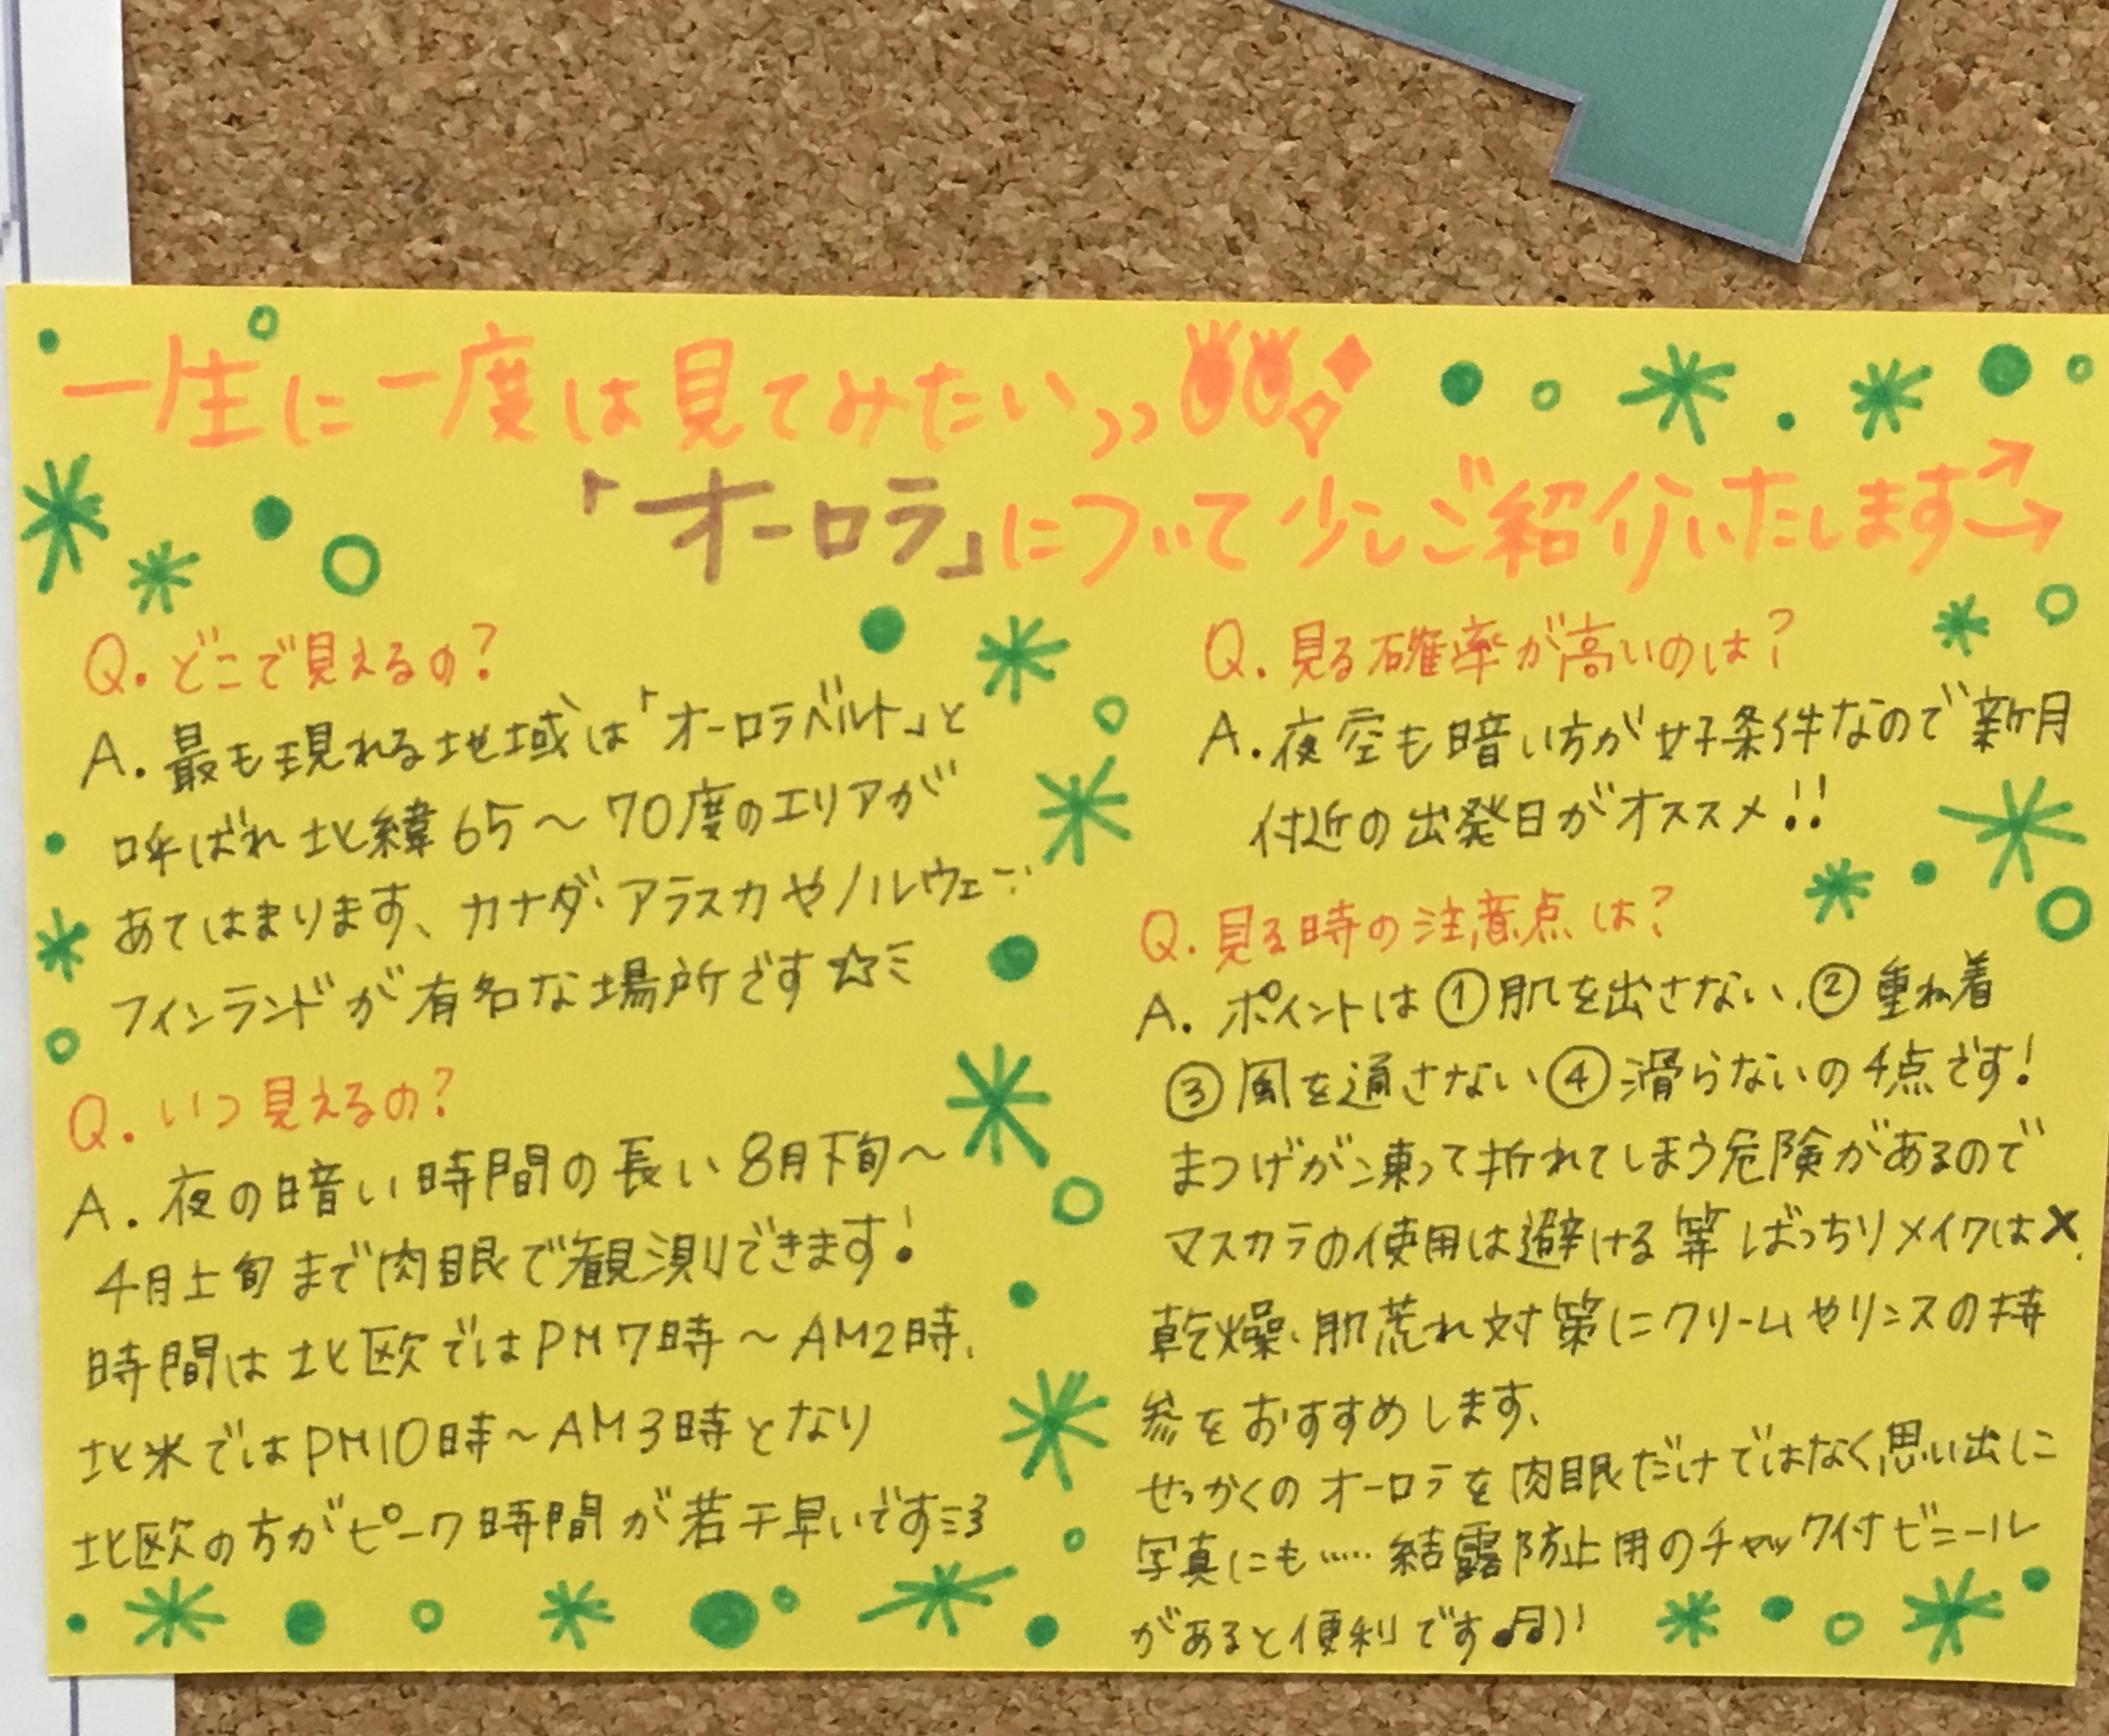 一生に一度は見てみたい
「オーロラ」について少しご紹介いたします
Q. どこで見えるの?
A. 最も現れる地域は「オーロラベルト」と
呼ばれ北緯65〜70度のエリアが
あてはまります、カナダ・アラスカやノルウェー・
フィンランドが有名な場所です☆ミ
Q. いつ見えるの?
A. 夜の暗い時間の長い8月下旬〜
4月上旬まで肉眼で観測できます!
時間は北欧ではPM7時〜AM2時、
北米ではPM10時〜AM3時となり
北欧の方がピーク時間が若干早いです
Q. 見る確率が高いのは?
A. 夜空も暗い方が好条件なので新月
付近の出発日がオススメ!!
Q. 見る時の注意点は?
A. ポイントは①肌を出さない、②重ね着
③風を通さない④滑らないの4点です!
まつげが凍って折れてしまう危険があるので
マスカラの使用は避ける等ばっちりメイクは×、
乾燥、肌荒れ対策にクリームやリンスの持
参をおすすめします、
せっかくのオーロラを肉眼だけではなく思い出に
写真にも……結露防止用のチャック付ビニール
があると便利です♫